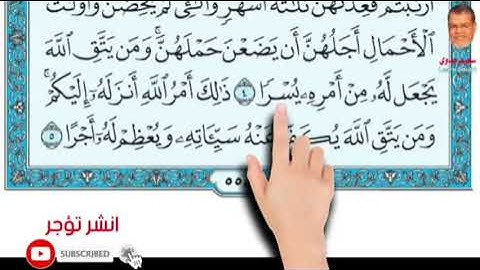 ٱرۡتَبۡتُمۡ فَعِدَّتُهُنَّ ثَلَٰثَةُ أَشۡهُرٖ وَٱلَّٰٓـِٔي لَمۡ يَحِضۡنَۚ وَأُوْلَٰتُ
ٱلۡأَحۡمَالِ أَجَلُهُنَّ أَن يَضَعۡنَ حَمۡلَهُنَّۚ وَمَن يَتَّقِ ٱللَّهَ
يَجۡعَل لَّهُۥ مِنۡ أَمۡرِهِۦ يُسۡرٗا ٤ ذَٰلِكَ أَمۡرُ ٱللَّهِ أَنزَلَهُۥٓ إِلَيۡكُمۡۚ
وَمَن يَتَّقِ ٱللَّهَ يُكَفِّرۡ عَنۡهُ سَيِّـَٔاتِهِۦ وَيُعۡظِمۡ لَهُۥٓ أَجۡرًا ٥
انشر تؤجر
SUBSCRIBED